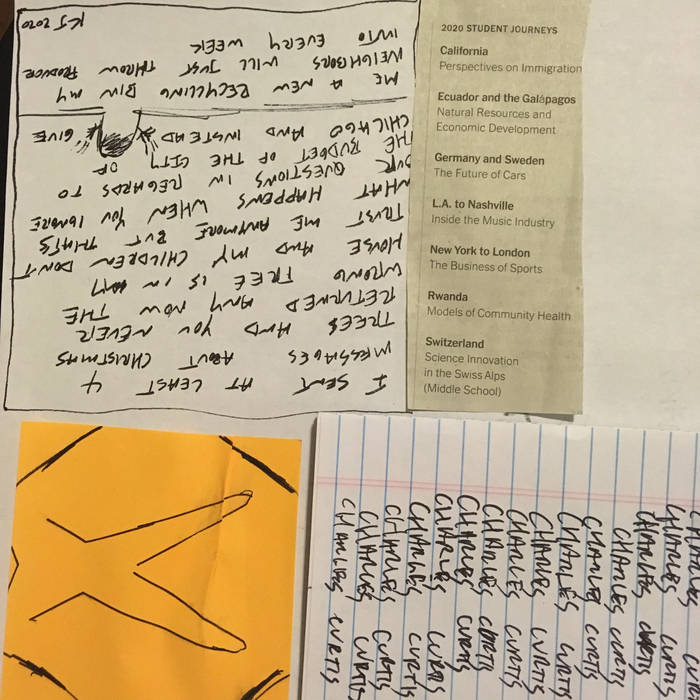 I SENT AT LEAST 4
MESSAGES ABOUT CHRISTMAS
TREES AND YOU NEVER
RETURNED ANY NOW THE
WRONG TREE IS IN MY
HOUSE AND MY CHILDREN DON'T
TRUST ME ANYMORE BUT THAT'S
WHAT HAPPENS WHEN YOU IGNORE
OUR QUESTIONS IN REGARDS TO
THE BUDGET OF THE CITY OF
CHICAGO AND INSTEAD GIVE
ME A NEW RECYCLING BIN MY
NEIGHBORS WILL JUST THROW PRODUCE
INTO EVERY WEEK
KJ 2020
2020 STUDENT JOURNEYS
California
Perspectives on Immigration
Ecuador and the Galápagos
Natural Resources and
Economic Development
Germany and Sweden
The Future of Cars
L.A. to Nashville
Inside the Music Industry
New York to London
The Business of Sports
Rwanda
Models of Community Health
Switzerland
Science Innovation
in the Swiss Alps
(Middle School)
CHARLES CURTIS
CHARLES CURTIS
CHARLES CURTIS
CHARLES CURTIS
CHARLES CURTIS
CHARLES CURTIS
CHARLES CURTIS
CHARLES CURTIS
CHARLES CURTIS
CHARLES CURTIS
CHARLES CURTIS
CHARLES CURTIS
CHARLES CURTIS
CHARLES CURTIS